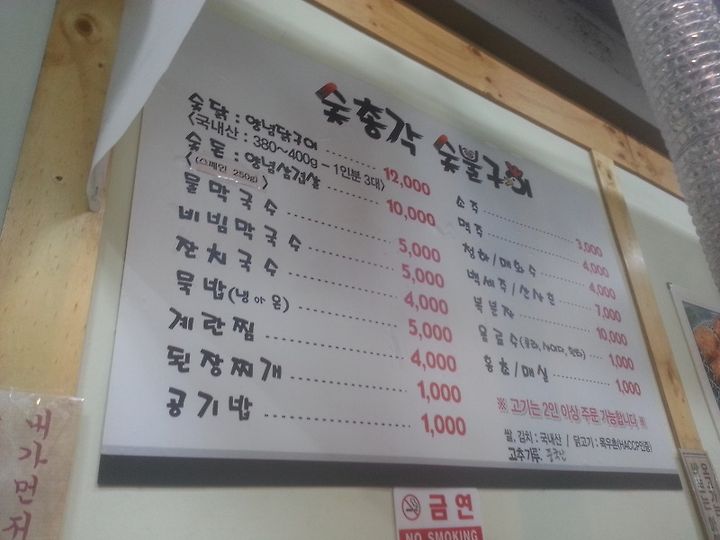 숯총각 숯불구이
숯닭 : 양념닭구이 12,000
〈국내산 : 380~400g – 1인분 3대〉
숯돈 : 양념삼겹살 10,000
〈(스페인 250g)〉
물막국수 5,000
비빔막국수 5,000
잔치국수 4,000
묵밥(냉 아 온) 5,000
계란찜 4,000
된장찌개 1,000
공기밥 1,000
소주 3,000
맥주 4,000
청하/매화수 4,000
백세주/산사춘 7,000
복분자 10,000
음료수(콜라, 사이다, 환타) 1,000
홍초/매실 1,000
※ 고기는 2인 이상 주문 가능합니다 ※
쌀, 김치 : 국내산 / 닭고기 : 목우촌(HACCP인증)
고추가루: 중국산
금연
NO SMOKING
내가먼저